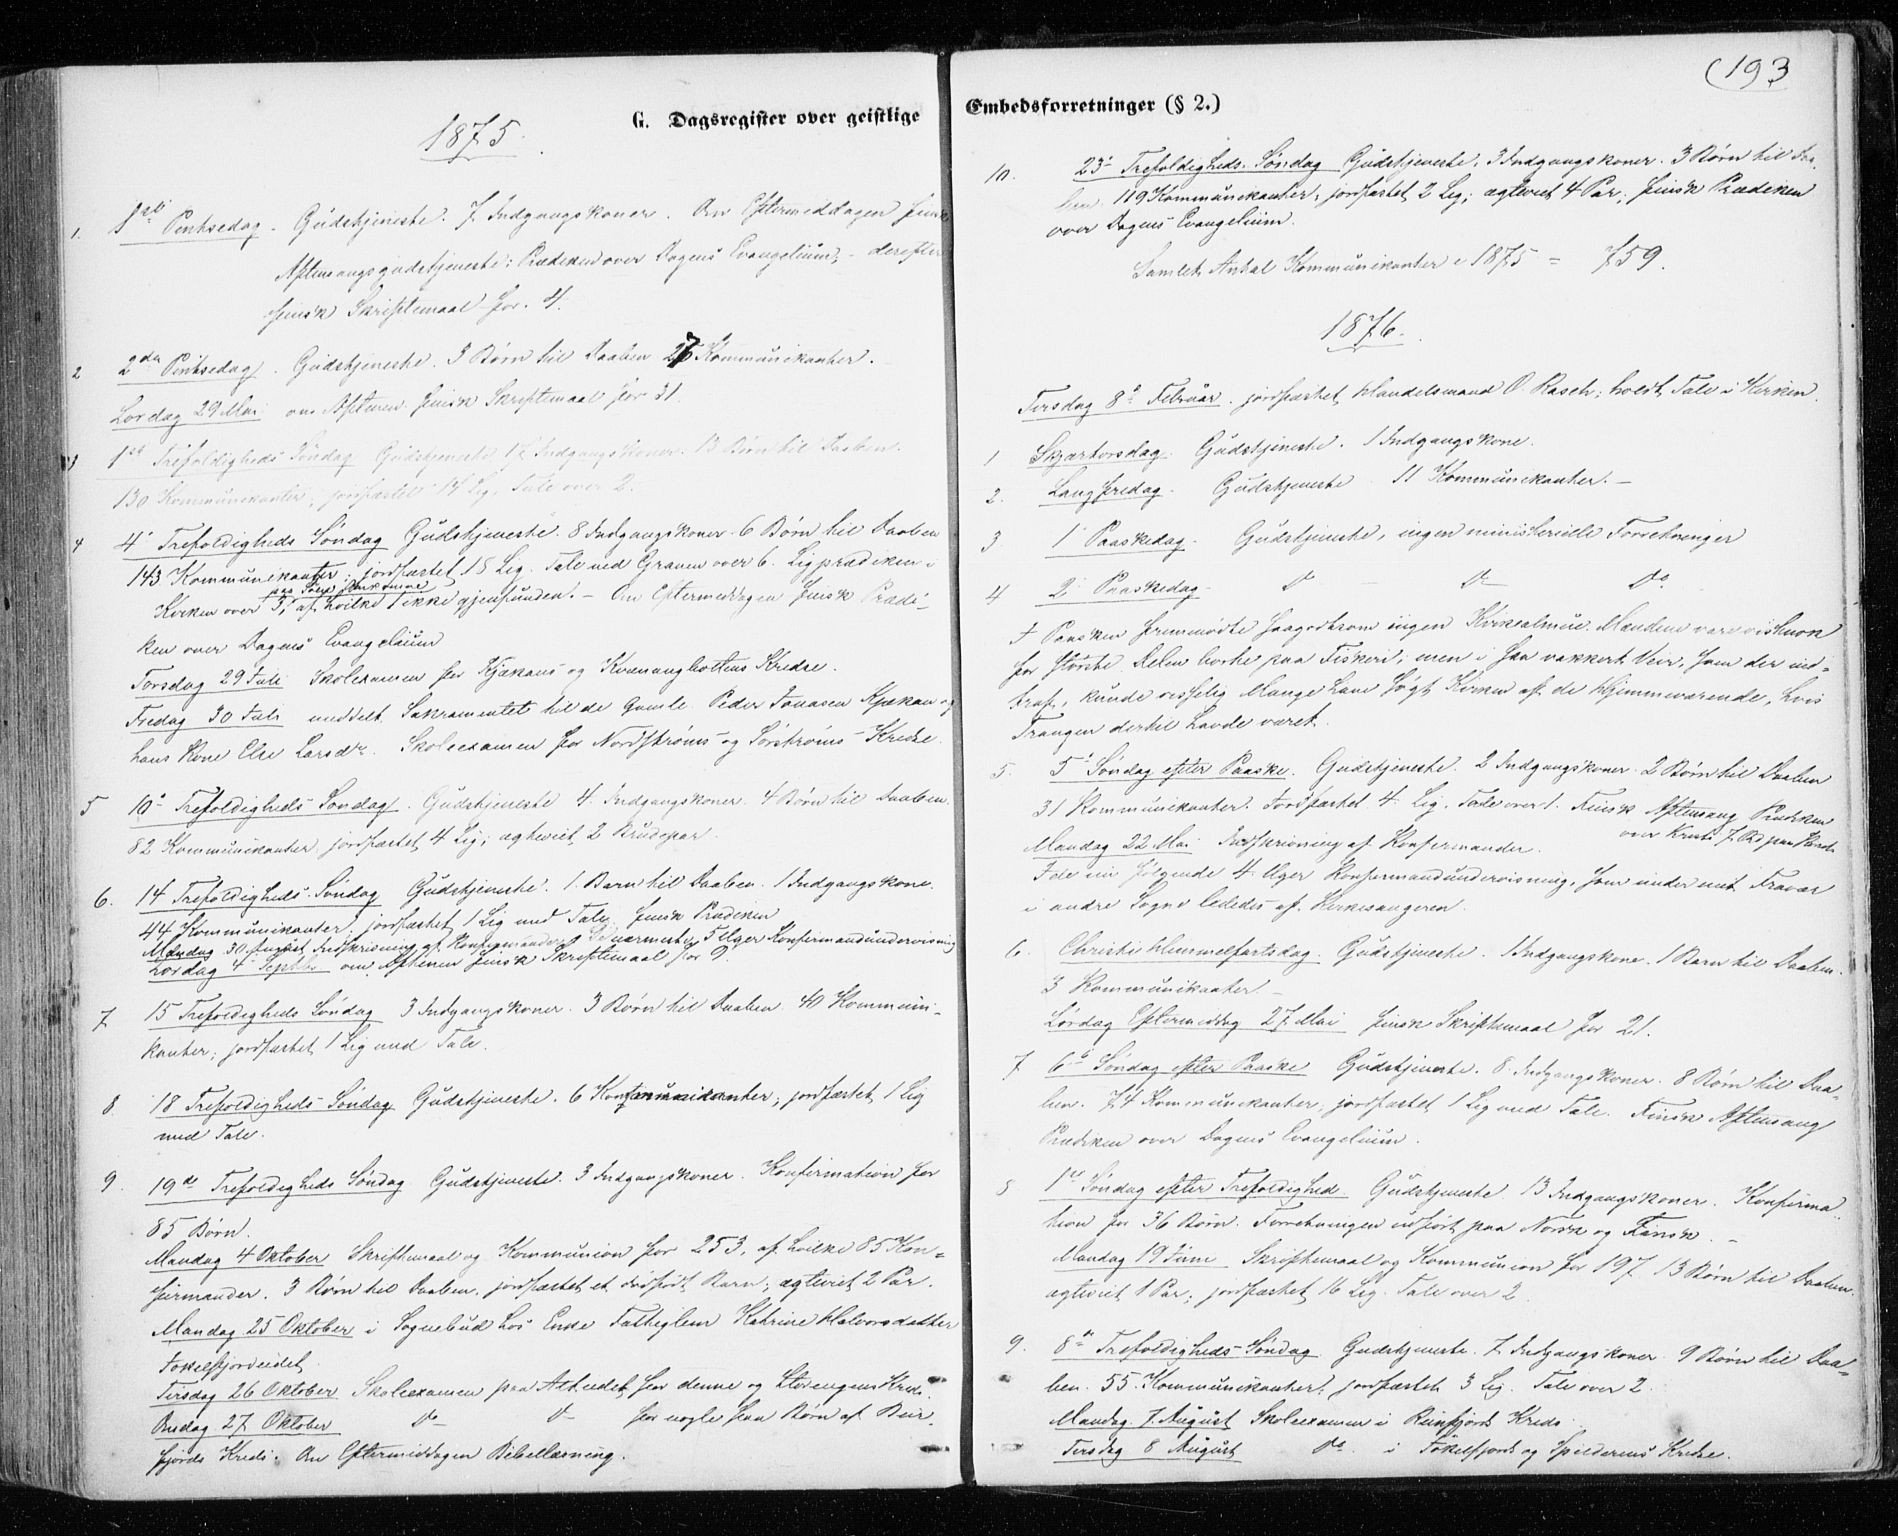 G. Dagsregister over geistlige
1875.
1. 1ste Pintsedag. Gudstjeneste. 7 Indgangskoner. Om Eftermeddagen finsk
Aftensangsgudstjeneste: Prædiken over Dagens Evangelium; - derefter
finsk Skriftemaal for 4.
2 2den Pintsedag. Gudstjeneste. 3 Børn til Daaben 27 Kommunikanter.
Lørdag 29 Mai om Aftenen finsk Skriftemaal for 31.
3 1ste Trefoldigheds Søndag Gudstjeneste 17 Indgangskoner. 13 Børn til Daaben.
130 Kommunikanter; jordfæstet 14 Lig, Tale over 2.
4 4' Trefoldigheds Søndag Gudstjeneste. 8 Indgangskoner. 6 Børn til Daaben
143 Kommunikanter; jordfæstet 15 Lig. Tale ved Graven over 6. Ligprædiken i
paa Søen omkomne
Kirken over 3, af hvilke 1 ikke gjenfunden. - Om Eftermeddagen finsk Prædi-
ken over Dagens Evangelium
Torsdag 29 Juli Skoleexamen for Kjækans og Kvænangbottens Kredse.
Fredag 30 Juli meddelt Sakramentet til de gamle Peder Jonasen Kjækan og
hans Kone Else Larsdr. Skoleexamen for Nordstrøms- og Sørstrøms-Kredse.
5 10' Trefoldigheds Søndag. Gudstjeneste 4 Indgangskoner. 4 Børn til Daaben.
82 Kommunikanter jordfæstet 4 Lig; ægteviet 2 Brudepar.
6. 14 Trefoldigheds Søndag Gudstjeneste. 1 Barn til Daaben. 1 Indgangskone.
44 Kommunikanter; jordfæstet 1 Lig med Tale. finsk Prædiken
Mandag 30 August Indskrivning af Konfirmander, de nærmeste 5 Uger Konfirmandundervisning
Lørdag 4 Septbr om Aftenen finsk Skriftemaal for 9.
7 15 Trefoldigheds Søndag 3 Indgangskoner. 3 Børn til Daaben. 40 Kommuni-
kanter; jordfæstet 1 Lig med Tale.
8 18 Trefoldigheds-Søndag Gudstjeneste. 6 Kommunikanter; jordfæstet 1 Lig
med Tale.
9. 19de Trefoldigheds Søndag Gudstjeneste. 3 Indgangskoner. Konfirmation for
85 Børn.
Mandag 4 Oktober Skriftemaal og Kommunion for 253, af hvilke 85 Kon-
firmander. 3 Børn til Daaben, jordfæstet et dødfødt Barn; ægteviet 2 Par.
Mandag 25 Oktober i Sognebud hos Enke Fattiglem Katrine Halvorsdatter
Jøkelfjordeidet.
Tirsdag 26 Oktober Skoleexamen paa Alteidet for denne og Storengens Kreds.
Onsdag 27 Oktober do do for nogle faa Børn af Bur-
fjords Kreds. Om Eftermeddagen Bibellæsning.
Embedsforretninger (§ 2.)
193
10. 23' Trefoldigheds Søndag Gudstjeneste. 3 Indgangskoner. 3 Børn til Daa-
ben. 119 Kommunikanter, jordfæstet 2 Lig; ægteviet 4 Par; finsk Prædiken
over Dagens Evangelium.
Samlet Antal Kommunikanter i 1875 = 759.
1876.
Tirsdag 8de Februar. jordfæstet Handelsmand O. Rasch; holdt Tale i Kirken.
1 Skjærtorsdag. Gudstjeneste. 1 Indgangskone.
2. Langfredag. Gudstjeneste 11 Kommunikanter. -
3 1' Paaskedag. Gudstjeneste, ingen ministerielle Forretninger
4 2' Paaskedag do - do do
I Paasken fremmødte saagodtsom ingen Kirkealmue. Mændene vare vistnok
for største Delen borte paa Fiskeri; men i saa vakkert Veir, som der ind-
traf, kunde visselig Mange have søgt Kirken af de Hjemmeværende, hvis
Trangen dertil havde været.
5. 5' Søndag efter Paaske. Gudstjeneste. 2 Indgangskoner. 2 Børn til Daaben
31 Kommunikanter. Jordfæstet 4 Lig. Tale over 1. Finsk Aftensang Prædiken
over Kristi 7 Ord paa Korset
Mandag 22 Mai Indskrivning af Konfirmander.
følgende 4 Uger Konfirmandundervisning, som under mit Fravær
i andre Sogne lededes af Kirkesangeren.
6. Christi Himmelfartsdag. Gudstjeneste. 1 Indgangskone. 1 Barn til Daaben.
3 Kommunikanter. -
Lørdag Eftermeddag 27 Mai finsk Skriftemaal for 21.
7 6te Søndag efter Paaske Gudstjeneste. 8 Indgangskoner. 8 Børn til Daa-
ben. 74 Kommunikanter, jordfæstet 1 Lig med Tale. Finsk Aftensang
Prædiken over Dagens Evangelium.
8 1ste Søndag efter Trefoldighed Gudstjeneste 13 Indgangskoner. Konfirma-
tion for 36 Børn. Forretningen udført paa Norsk og Finsk. -
Mandag 19 Juni Skriftemaal og Kommunion for 197. 13 Børn til Daaben.
ægteviet 1 Par; jordfæstet 16 Lig. Tale over 2
9. 8de Trefoldigheds-Søndag Gudstjeneste. 7 Indgangskoner 9 Børn til Daa-
ben. 55 Kommunikanter; jordfæstet 3 Lig. Tale over 2.
Mandag 7 August Skoleexamen i Reinfjords Kreds.
Tirsdag 8 August do. i Jøkelfjords og Spilderens Kredse.